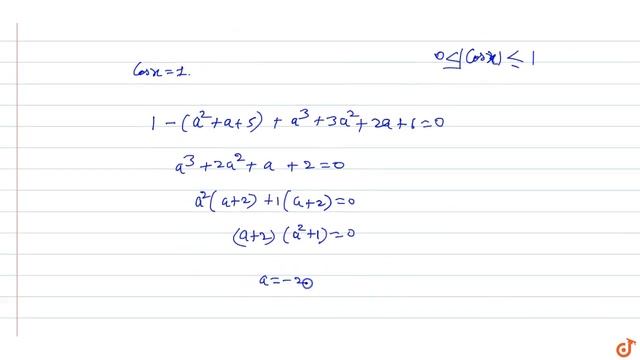 0 ≤ |Cosx| ≤ 1
Cosx = 1.
1 - (a² + a + 5) + a³ + 3a² + 2a + 6 = 0
a³ + 2a² + a + 2 = 0
a² (a+2) + 1 (a+2) = 0
(a+2) (a²+1) = 0
a = -2